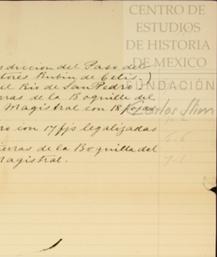 CENTRO DE
ESTUDIOS
DE HISTORIA
DE MEXICO
FUNDACIÓN
Carlos Slim
del Paso del
Rubin de Celis.)
el Rio de San Pedro
de la Boquilla del
Magistral con 18 fojas
con 17 fjs legalizadas
de la Boquilla del
Magistral.